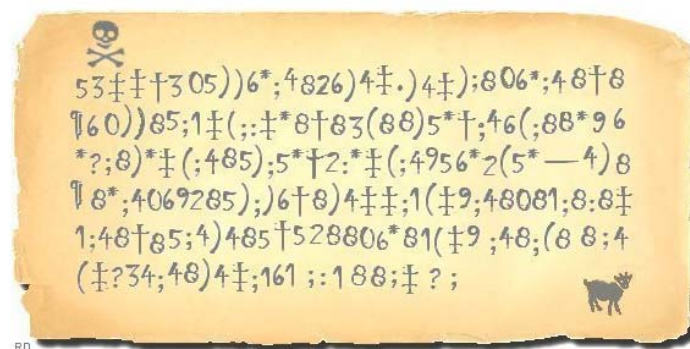 53‡‡†305))6*;4826)4‡.)4‡);806*;48†8
¶60))85;1‡(;:‡*8†83(88)5*†;46(;88*96
*?;8)*‡(;485);5*†2:*‡(;4956*2(5*—4)8
¶8*;4069285);)6†8)4‡‡;1(‡9;48081;8:8‡
1;48†85;4)485†528806*81(‡9;48;(88;4
(‡?34;48)4‡;161;:188;‡?;
RD